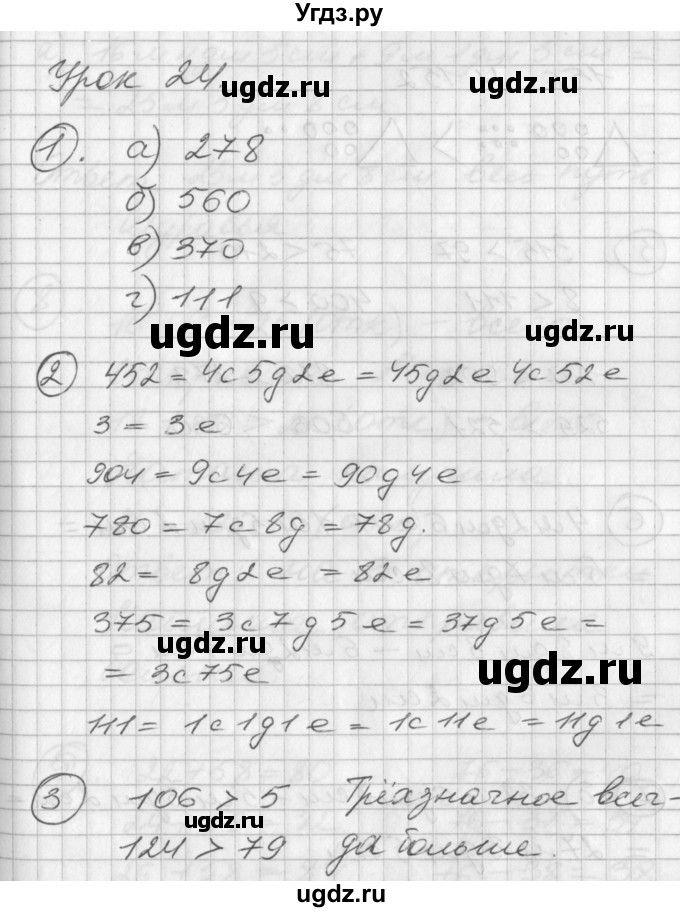 Угдз.ру
Урок 24
ugdz.ru ugdz.ru
1. а) 278
б) 560
в) 370
г) 111
ugdz.ru ugdz.ru
2 452 = 4с 5д 2е = 45д 2е 4с 52е
3 = 3е
ugdz.ru
904 = 9с 4е = 90д 4е
780 = 7с 8д = 78д.
82 = 8д 2е = 82е
375 = 3с 7д 5е = 37д 5е =
ugdz.ru ugdz.ru
= 3с 75е
111 = 1с 1д 1е = 1с 11е = 11д 1е
3 106 > 5 Трёхзначное всег-
ugdz.ru
124 > 79 да больше.
ugdz.ru